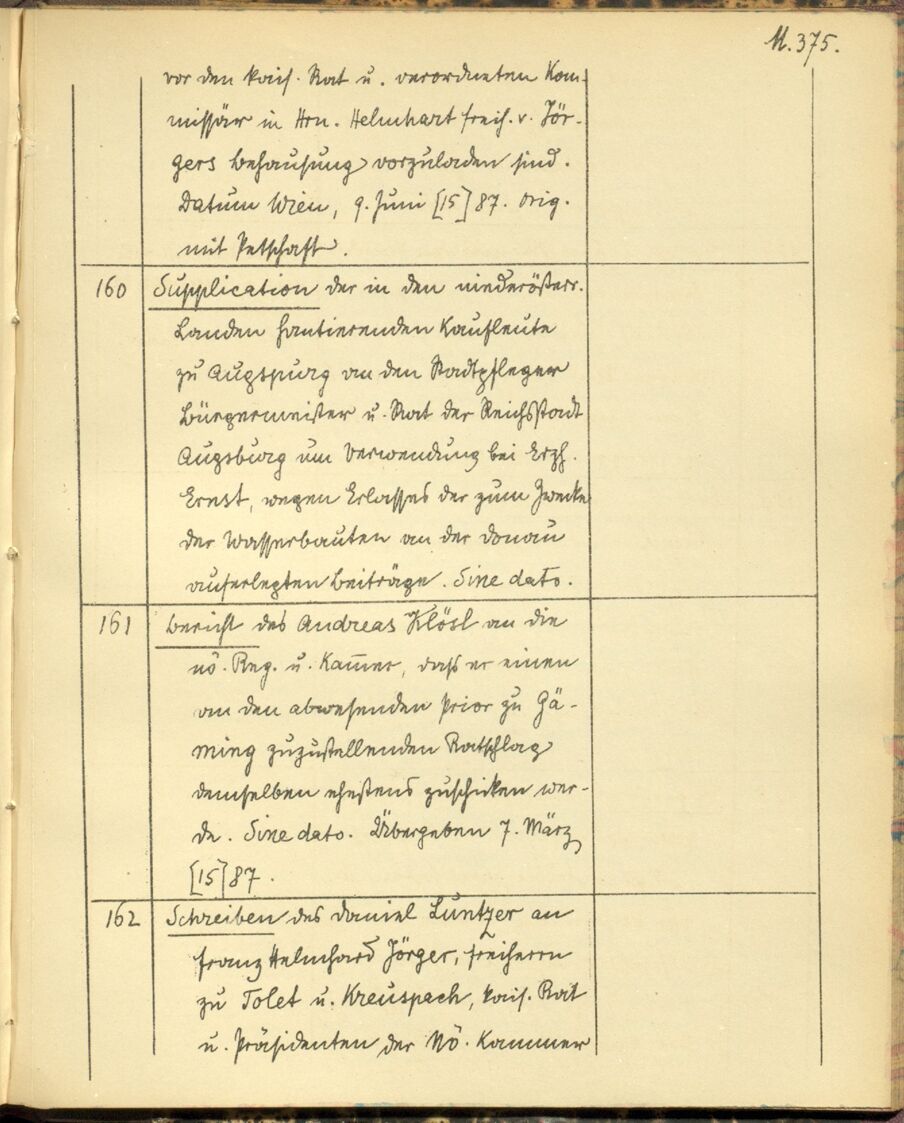 M. 375.
vor den kais. Rat u. verordneten Kom-
missär in Hrn. Helmhart freih. v. Jör-
gers Behausung vorzuladen sind.
Datum Wien, 9. Juni [15]87. Orig.
mit Petschaft.
160 Supplication der in den niederösterr.
Landen hantierenden Kaufleute
zu Augspurg an den Stadtpfleger
Bürgermeister u. Rat der Reichsstadt
Augsburg um Verwendung bei Erzh.
Ernst, wegen Erlasses der zum Zwecke
der Wasserbauten an der Donau
auferlegten Beiträge. Sine dato.
161 Bericht des Andreas Klösl an die
nö. Reg. u. Kam̄er, daß er einen
an den abwesenden Prior zu Gä-
ming zuzustellenden Ratschlag
demselben ehestens zuschicken wer-
de. Sine dato. Übergeben 7. März
[15]87.
162 Schreiben des Daniel Luntzer an
Franz Helmhard Jörger, Freiherrn
zu Tolet u. Kreuspach, kais. Rat
u. Präsidenten der Nö. Kammer